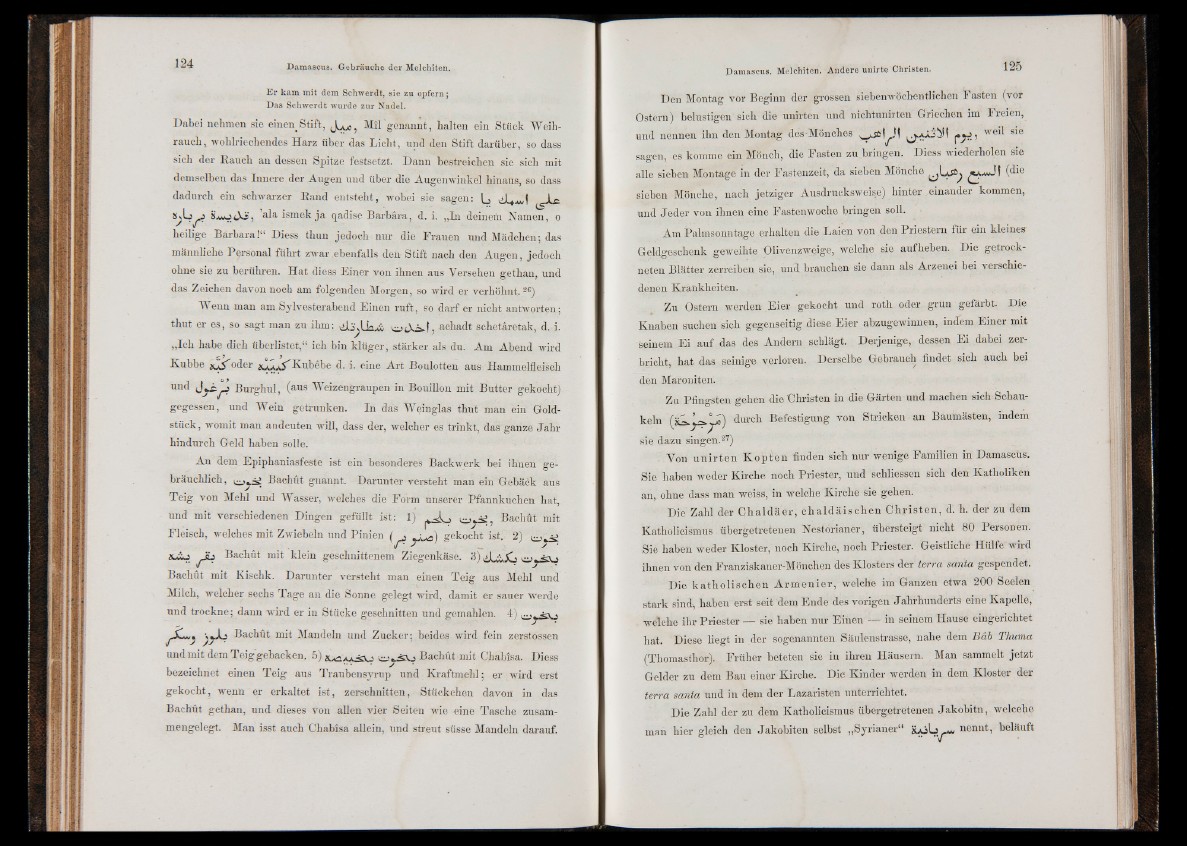 124
Damascus. Gebräuche der Melchiten.
Er kam mit dem Schwerdt, sie zu opfern;
Das Schwerdt wurde zur Nadel.
Dabei nehmen sie einen Stift, ميل, Mîl genannt, halten ein Stück Weih-
rauch, wohlriechendes Harz über das Licht, und den Stift darüber, so dass
sich der Rauch an dessen Spitze festsetzt. Dann bestreichen sie sich mit
demselben das Innere der Augen und über die Augenwinkel hinaus, so dass
dadurch ein schwarzer Rand entsteht, wobei sie sagen: على اسمك يا
قديسة بربارة, 'ala ismek ja qadise Barbâra, d. i. „In deinem Namen, o
heilige Barbara!“ Diess thun jedoch nur die Frauen und Mädchen; das
männliche Personal führt zwar ebenfalls den Stift nach den Augen, jedoch
ohne sie zu berühren. Hat diess Einer von ihnen aus Versehen gethan, und
das Zeichen davon noch am folgenden Morgen, so wird er verhöhnt.²⁶)
Wenn man am Sylvesterabend Einen ruft, so darf er nicht antworten;
thut er es, so sagt man zu ihm: اخذت شطارتك, achadt schetâretak, d. i.
„Ich habe dich überlistet,“ ich bin klüger, stärker als du. Am Abend wird
Kubbe كبة oder كبيبة Kubêbe d. i. eine Art Boulotten aus Hammelfleisch
und برغل Burghul, (aus Weizengraupen in Bouillon mit Butter gekocht)
gegessen, und Wein getrunken. In das Weinglas thut man ein Gold-
stück, womit man andeuten will, dass der, welcher es trinkt, das ganze Jahr
hindurch Geld haben solle.
An dem Epiphaniasfeste ist ein besonderes Backwerk bei ihnen ge-
bräuchlich, بخوت Bachût gnannt. Darunter versteht man ein Gebäck aus
Teig von Mehl und Wasser, welches die Form unserer Pfannkuchen hat,
und mit verschiedenen Dingen gefüllt ist: 1) بخوت بلحم, Bachût mit
Fleisch, welches mit Zwiebeln und Pinien (صنوبر) gekocht ist. 2) بخوت
Bachût mit klein geschnittenem Ziegenkäse. 3) بخوت بكشك
Bachût mit Kischk. Darunter versteht man einen Teig aus Mehl und
Milch, welcher sechs Tage an die Sonne gelegt wird, damit er sauer werde
und trockne; dann wird er in Stücke geschnitten und gemahlen. 4) بخوت
بلوز وسكر Bachût mit Mandeln und Zucker; beides wird fein zerstossen
und mit dem Teig gebacken. 5) بخوت بخبيصة Bachût mit Chabîsa. Diess
bezeichnet einen Teig aus Traubensyrup und Kraftmehl; er wird erst
gekocht, wenn er erkaltet ist, zerschnitten, Stückchen davon in das
Bachût gethan, und dieses von allen vier Seiten wie eine Tasche zusam-
mengelegt. Man isst auch Chabîsa allein, und streut süsse Mandeln darauf.
Damascus. Melchiten. Andere unirte Christen.
125
Den Montag vor Beginn der grossen siebenwöchentlichen Fasten (vor
Ostern) belustigen sich die unirten und nichtunirten Griechen im Freien,
und nennen ihn den Montag des Mönches يوم الاثنين الراهب, weil sie
sagen, es komme ein Mönch, die Fasten zu bringen. Diess wiederholen sie
alle sieben Montage in der Fastenzeit, da sieben Mönche السبع رهبان (die
sieben Mönche, nach jetziger Ausdrucksweise) hinter einander kommen,
und Jeder von ihnen eine Fastenwoche bringen soll.
Am Palmsonntage erhalten die Laien von den Priestern für ein kleines
Geldgeschenk geweihte Olivenzweige, welche sie aufheben. Die getrock-
neten Blätter zerreiben sie, und brauchen sie dann als Arzenei bei verschie-
denen Krankheiten.
Zu Ostern werden Eier gekocht und roth oder grün gefärbt. Die
Knaben suchen sich gegenseitig diese Eier abzugewinnen, indem Einer mit
seinem Ei auf das des Andern schlägt. Derjenige, dessen Ei dabei zer-
bricht, hat das seinige verloren. Derselbe Gebrauch findet sich auch bei
den Maroniten.
Zu Pfingsten gehen die Christen in die Gärten und machen sich Schau-
keln (مرجوحة) durch Befestigung von Stricken an Baumästen, indem
sie dazu singen.²⁷)
Von unirten Kopten finden sich nur wenige Familien in Damascus.
Sie haben weder Kirche noch Priester, und schliessen sich den Katholiken
an, ohne dass man weiss, in welche Kirche sie gehen.
Die Zahl der Chaldäer, chaldäischen Christen, d. h. der zu dem
Katholicismus übergetretenen Nestorianer, übersteigt nicht 80 Personen.
Sie haben weder Kloster, noch Kirche, noch Priester. Geistliche Hülfe wird
ihnen von den Franziskaner-Mönchen des Klosters der terra santa gespendet.
Die katholischen Armenier, welche im Ganzen etwa 200 Seelen
stark sind, haben erst seit dem Ende des vorigen Jahrhunderts eine Kapelle,
welche ihr Priester — sie haben nur Einen — in seinem Hause eingerichtet
hat. Diese liegt in der sogenannten Säulenstrasse, nahe dem Bâb Thuma
(Thomasthor). Früher beteten sie in ihren Häusern. Man sammelt jetzt
Gelder zu dem Bau einer Kirche. Die Kinder werden in dem Kloster der
terra santa und in dem der Lazaristen unterrichtet.
Die Zahl der zu dem Katholicismus übergetretenen Jakobitn, welcehe
man hier gleich den Jakobiten selbst „Syrianer“ سريانية nennt, beläuft